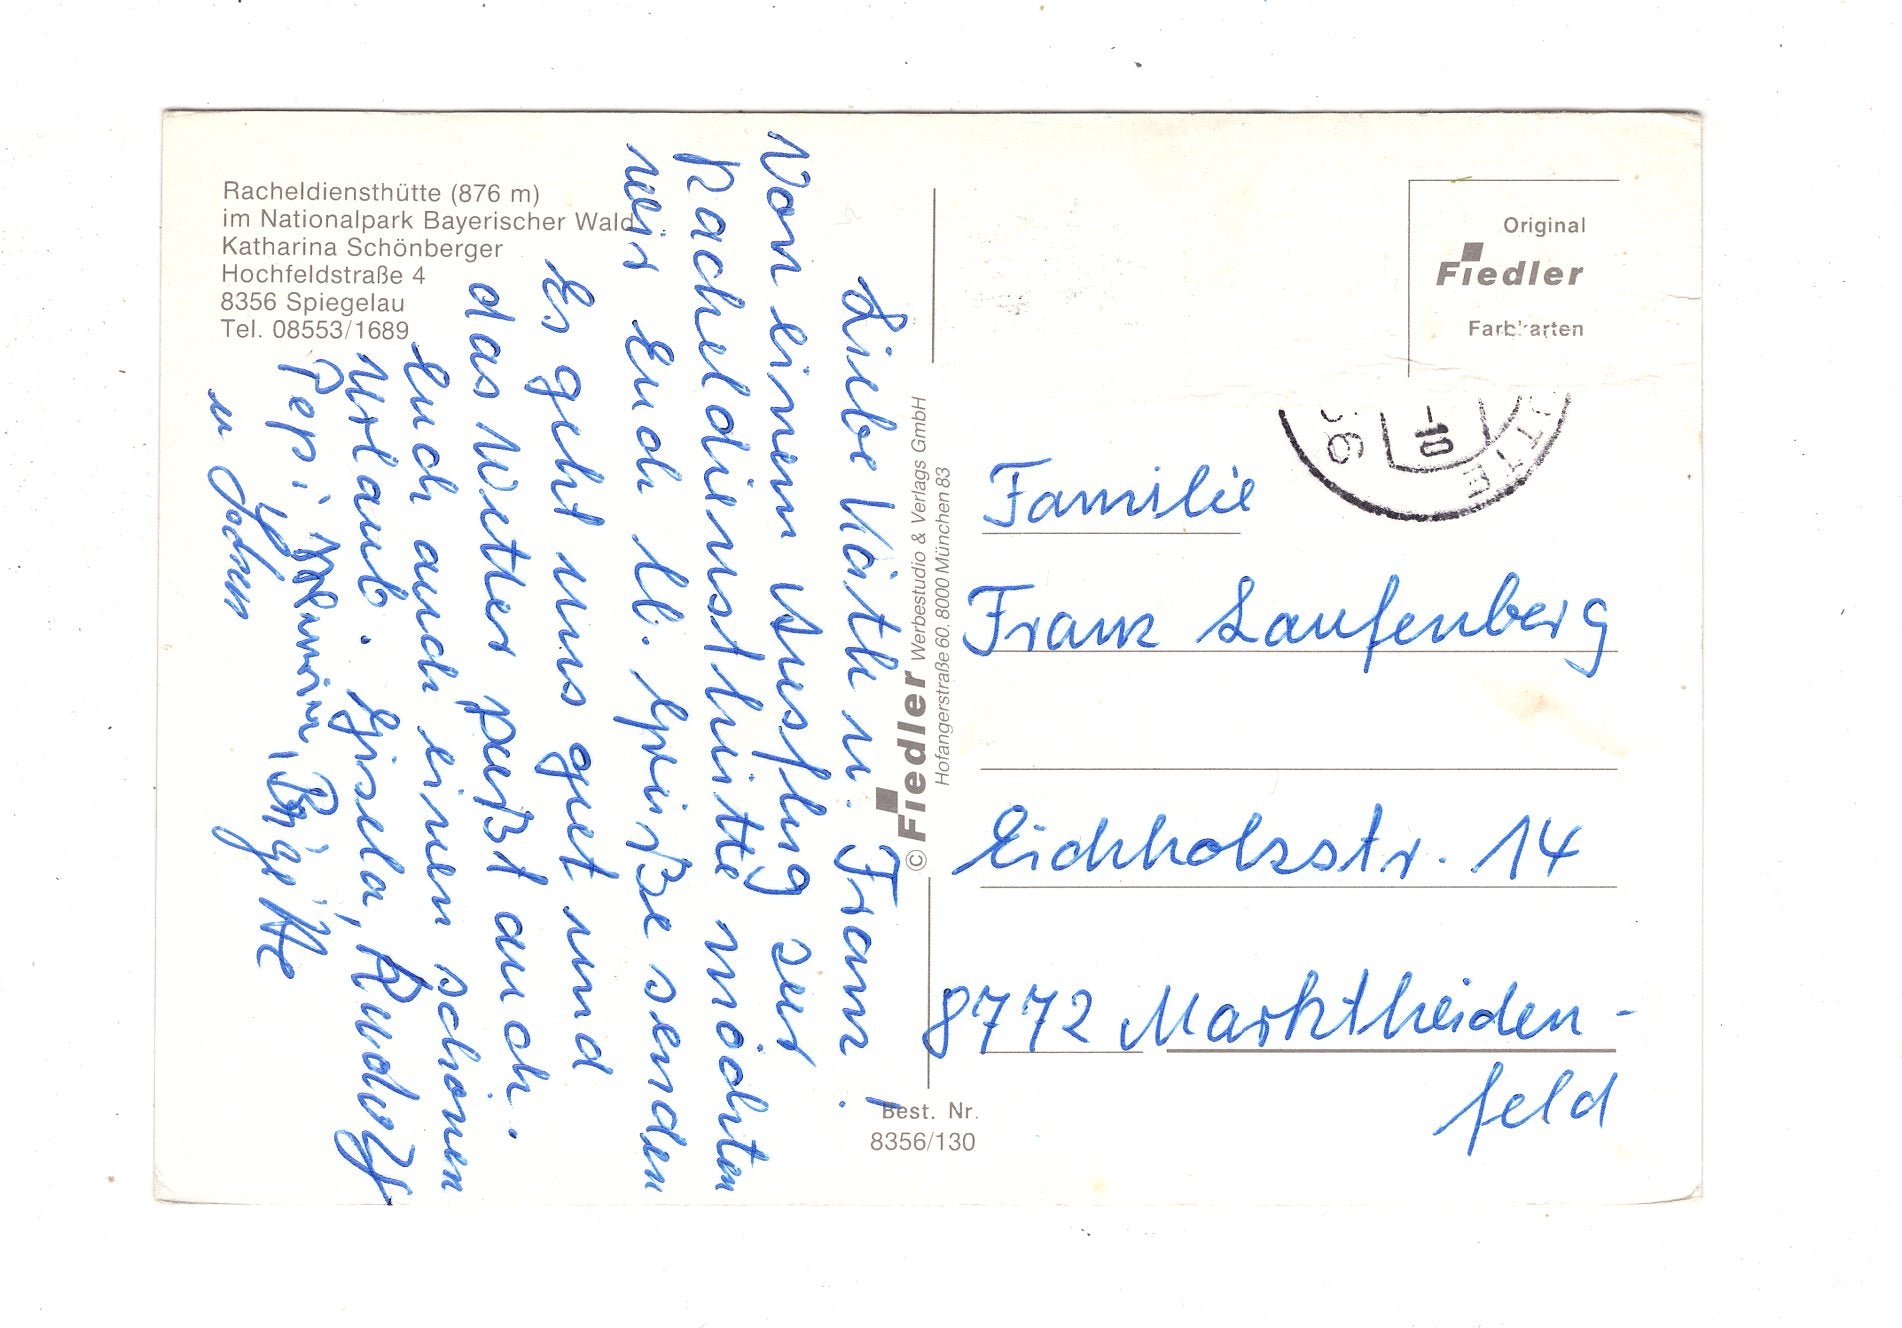 Racheldiensthütte (876 m)
im Nationalpark Bayerischer Wald
Katharina Schönberger
Hochfeldstraße 4
8356 Spiegelau
Tel. 08553/1689
Liebe Käthe u. Franz!
Von einem Ausflug zur
Racheldiensthütte möchten
wir Euch lb. Grüße senden
Es geht uns gut und
das Wetter paßt auch.
Euch auch einen schönen
Urlaub. Gisela, Rudolf
Pepi, Brigitte
u Jochen
© Fiedler Werbestudio & Verlags GmbH
Hofangerstraße 60. 8000 München 83
Best. Nr.
8356/130
Original
Fiedler
Farbkarten
10
Familie
Franz Laufenberg
Eichholzstr. 14
8772 Marktheiden-
feld